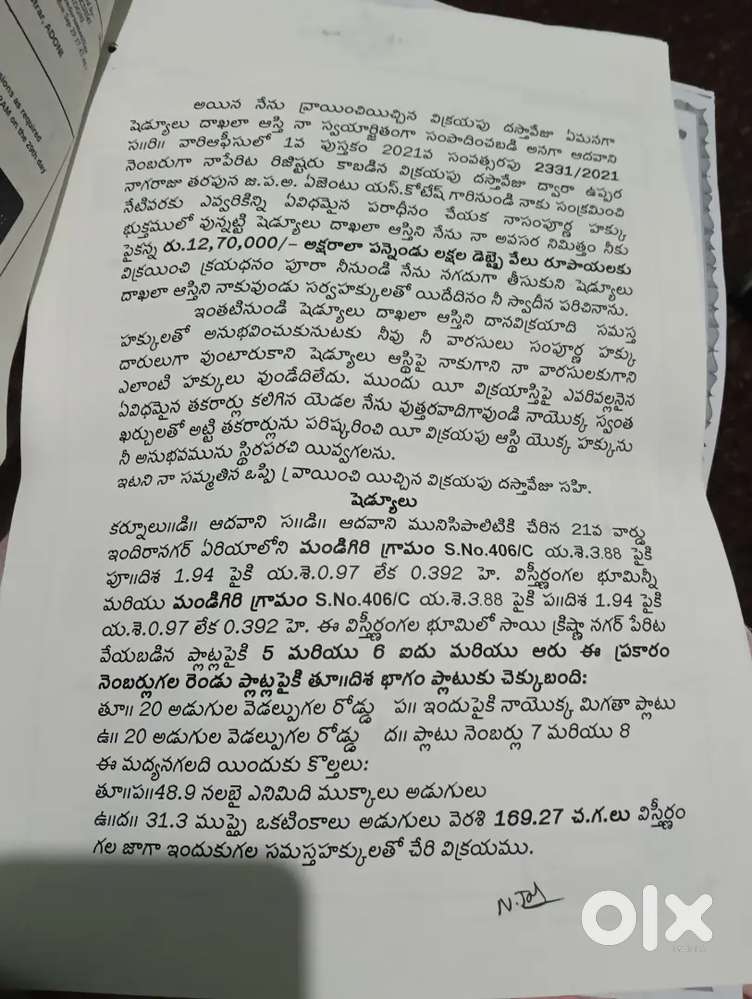 strar, ADONI
sions as required
RAM on the 29th day
అయిన నేను వ్రాయించియిచ్చిన విక్రయపు దస్తావేజు ఏమనగా
షెడ్యూలు దాఖలా ఆస్తి నా స్వయార్జితంగా సంపాదించబడి అనగా ఆదవాని
స॥రి॥ వారిఆఫీసులో 1వ పుస్తకం 2021వ సంవత్సరపు 2331/2021
నెంబరుగా నాపేరిట రిజిష్టరు కాబడిన విక్రయపు దస్తావేజు ద్వారా ఉప్పర
నాగరాజు తరపున జి.ప.అ. ఏజెంటు యస్.కోటేష్ గారినుండి నాకు సంక్రమించి
నేటివరకు ఎవ్వరికిన్ని ఏవిధమైన పరాధీనం చేయక నాసంపూర్ణ హక్కు
భుక్తములో వున్నట్టి షెడ్యూలు దాఖలా ఆస్తిని నేను నా అవసర నిమిత్తం నీకు
పైకన్న రు.12,70,000/- అక్షరాలా పన్నెండు లక్షల డెబ్బై వేలు రూపాయలకు
విక్రయించి క్రయధనం పూరా నీనుండి నేను నగదుగా తీసుకుని షెడ్యూలు
దాఖలా ఆస్తిని నాకువుండు సర్వహక్కులతో యిదేదినం నీ స్వాధీన పరిచినాను.
ఇంతటినుండి షెడ్యూలు దాఖలా ఆస్తిని దానవిక్రయాది సమస్త
హక్కులతో అనుభవించుకునుటకు నీవు నీ వారసులు సంపూర్ణ హక్కు
దారులుగా వుంటారుకాని షెడ్యూలు ఆస్థిపై నాకుగాని నా వారసులకుగాని
ఎలాంటి హక్కులు వుండేదిలేదు. ముందు యీ విక్రయాస్తిపై ఎవరివల్లనైన
ఏవిధమైన తకరార్లు కలిగిన యెడల నేను వుత్తరవాదిగావుండి నాయొక్క స్వంత
ఖర్చులతో అట్టి తకరార్లును పరిష్కరించి యీ విక్రయపు ఆస్థి యొక్క హక్కును
నీ అనుభవమును స్థిరపరచి యివ్వగలను.
ఇటని నా సమ్మతిన ఒప్పి వ్రాయించి యిచ్చిన విక్రయపు దస్తావేజు సహి.
షెడ్యూలు
కర్నూలు॥డి॥ ఆదవాని స॥డి॥ ఆదవాని మునిసిపాలిటికి చేరిన 21వ వార్డు
ఇందిరానగర్ ఏరియాలోని మండిగిరి గ్రామం S.No.406/C య.శె.3.88 పైకి
పూ॥దిశ 1.94 పైకి య.శె.0.97 లేక 0.392 హె. విస్తీర్ణంగల భూమిన్నీ
మరియు మండిగిరి గ్రామం S.No.406/C య.శె.3.88 పైకి ప॥దిశ 1.94 పైకి
య.శె.0.97 లేక 0.392 హె. ఈ విస్తీర్ణంగల భూమిలో సాయి క్రిష్ణా నగర్ పేరిట
వేయబడిన ప్లాట్లపైకి 5 మరియు 6 ఐదు మరియు ఆరు ఈ ప్రకారం
నెంబర్లుగల రెండు ప్లాట్లపైకి తూ॥దిశ భాగం ప్లాటుకు చెక్కుబంది:
తూ॥ 20 అడుగుల వెడల్పుగల రోడ్డు ప॥ ఇందుపైకి నాయొక్క మిగతా ప్లాటు
ఉ॥ 20 అడుగుల వెడల్పుగల రోడ్డు ద॥ ప్లాటు నెంబర్లు 7 మరియు 8
ఈ మద్యనగలది యిందుకు కొల్తలు:
తూ॥ప॥48.9 నలభై ఎనిమిది ముక్కాలు అడుగులు
ఉ॥ద॥ 31.3 ముప్పై ఒకటింకాలు అడుగులు వెరశి 169.27 చ.గ.లు విస్తీర్ణం
గల జాగా ఇందుకుగల సమస్తహక్కులతో చేరి విక్రయము.
olx